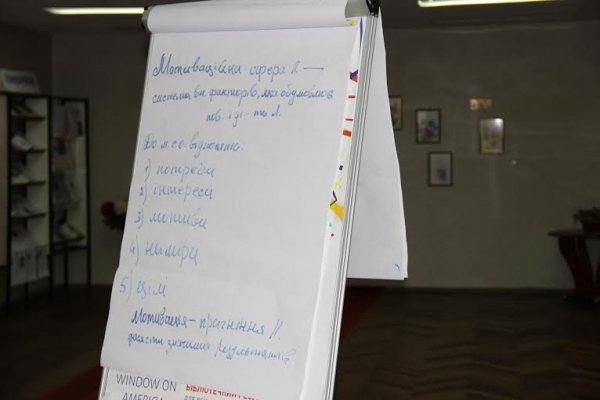 Мотиваційна сфера Л —
система вн. факторів, яка обумовлює
пов. і ді-ть Л.
До м.с.о. відносять:
1) потреби
2) інтереси
3) мотиви
4) наміри
5) цілі
Мотивація – прагнення Л.
досягти значимих результатів
WINDOW ON
AMERICA